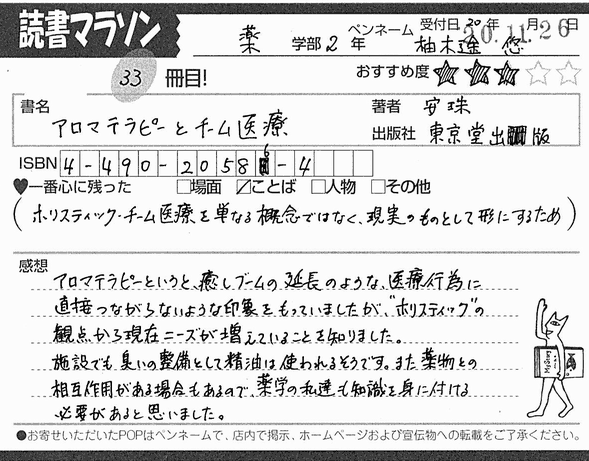 読書マラソン
薬 学部 2 年 ペンネーム 柚木 遥 悠
受付日 20年 月 日
20.11.26
33 冊目!
おすすめ度 ★★★☆☆
書名 アロマテラピーとチーム医療
著者 安珠
出版社 東京堂出版
ISBN 4-490-20586-4
♥一番心に残った □場面 ☑ことば □人物 □その他
(ホリスティック・チーム医療を単なる概念ではなく、現実のものとして形にするため)
感想
アロマテラピーというと、癒しブームの延長のような、医療行為に
直接つながらないような印象をもっていましたが、“ホリスティック”の
観点から現在ニーズが増えていることを知りました。
施設でも臭いの整備として精油は使われるそうです。また薬物との
相互作用がある場合もあるので、薬学の私達も知識を身に付ける
必要があると思いました。
●お寄せいただいたPOPはペンネームで、店内で掲示、ホームページおよび宣伝物への転載をご了承ください。